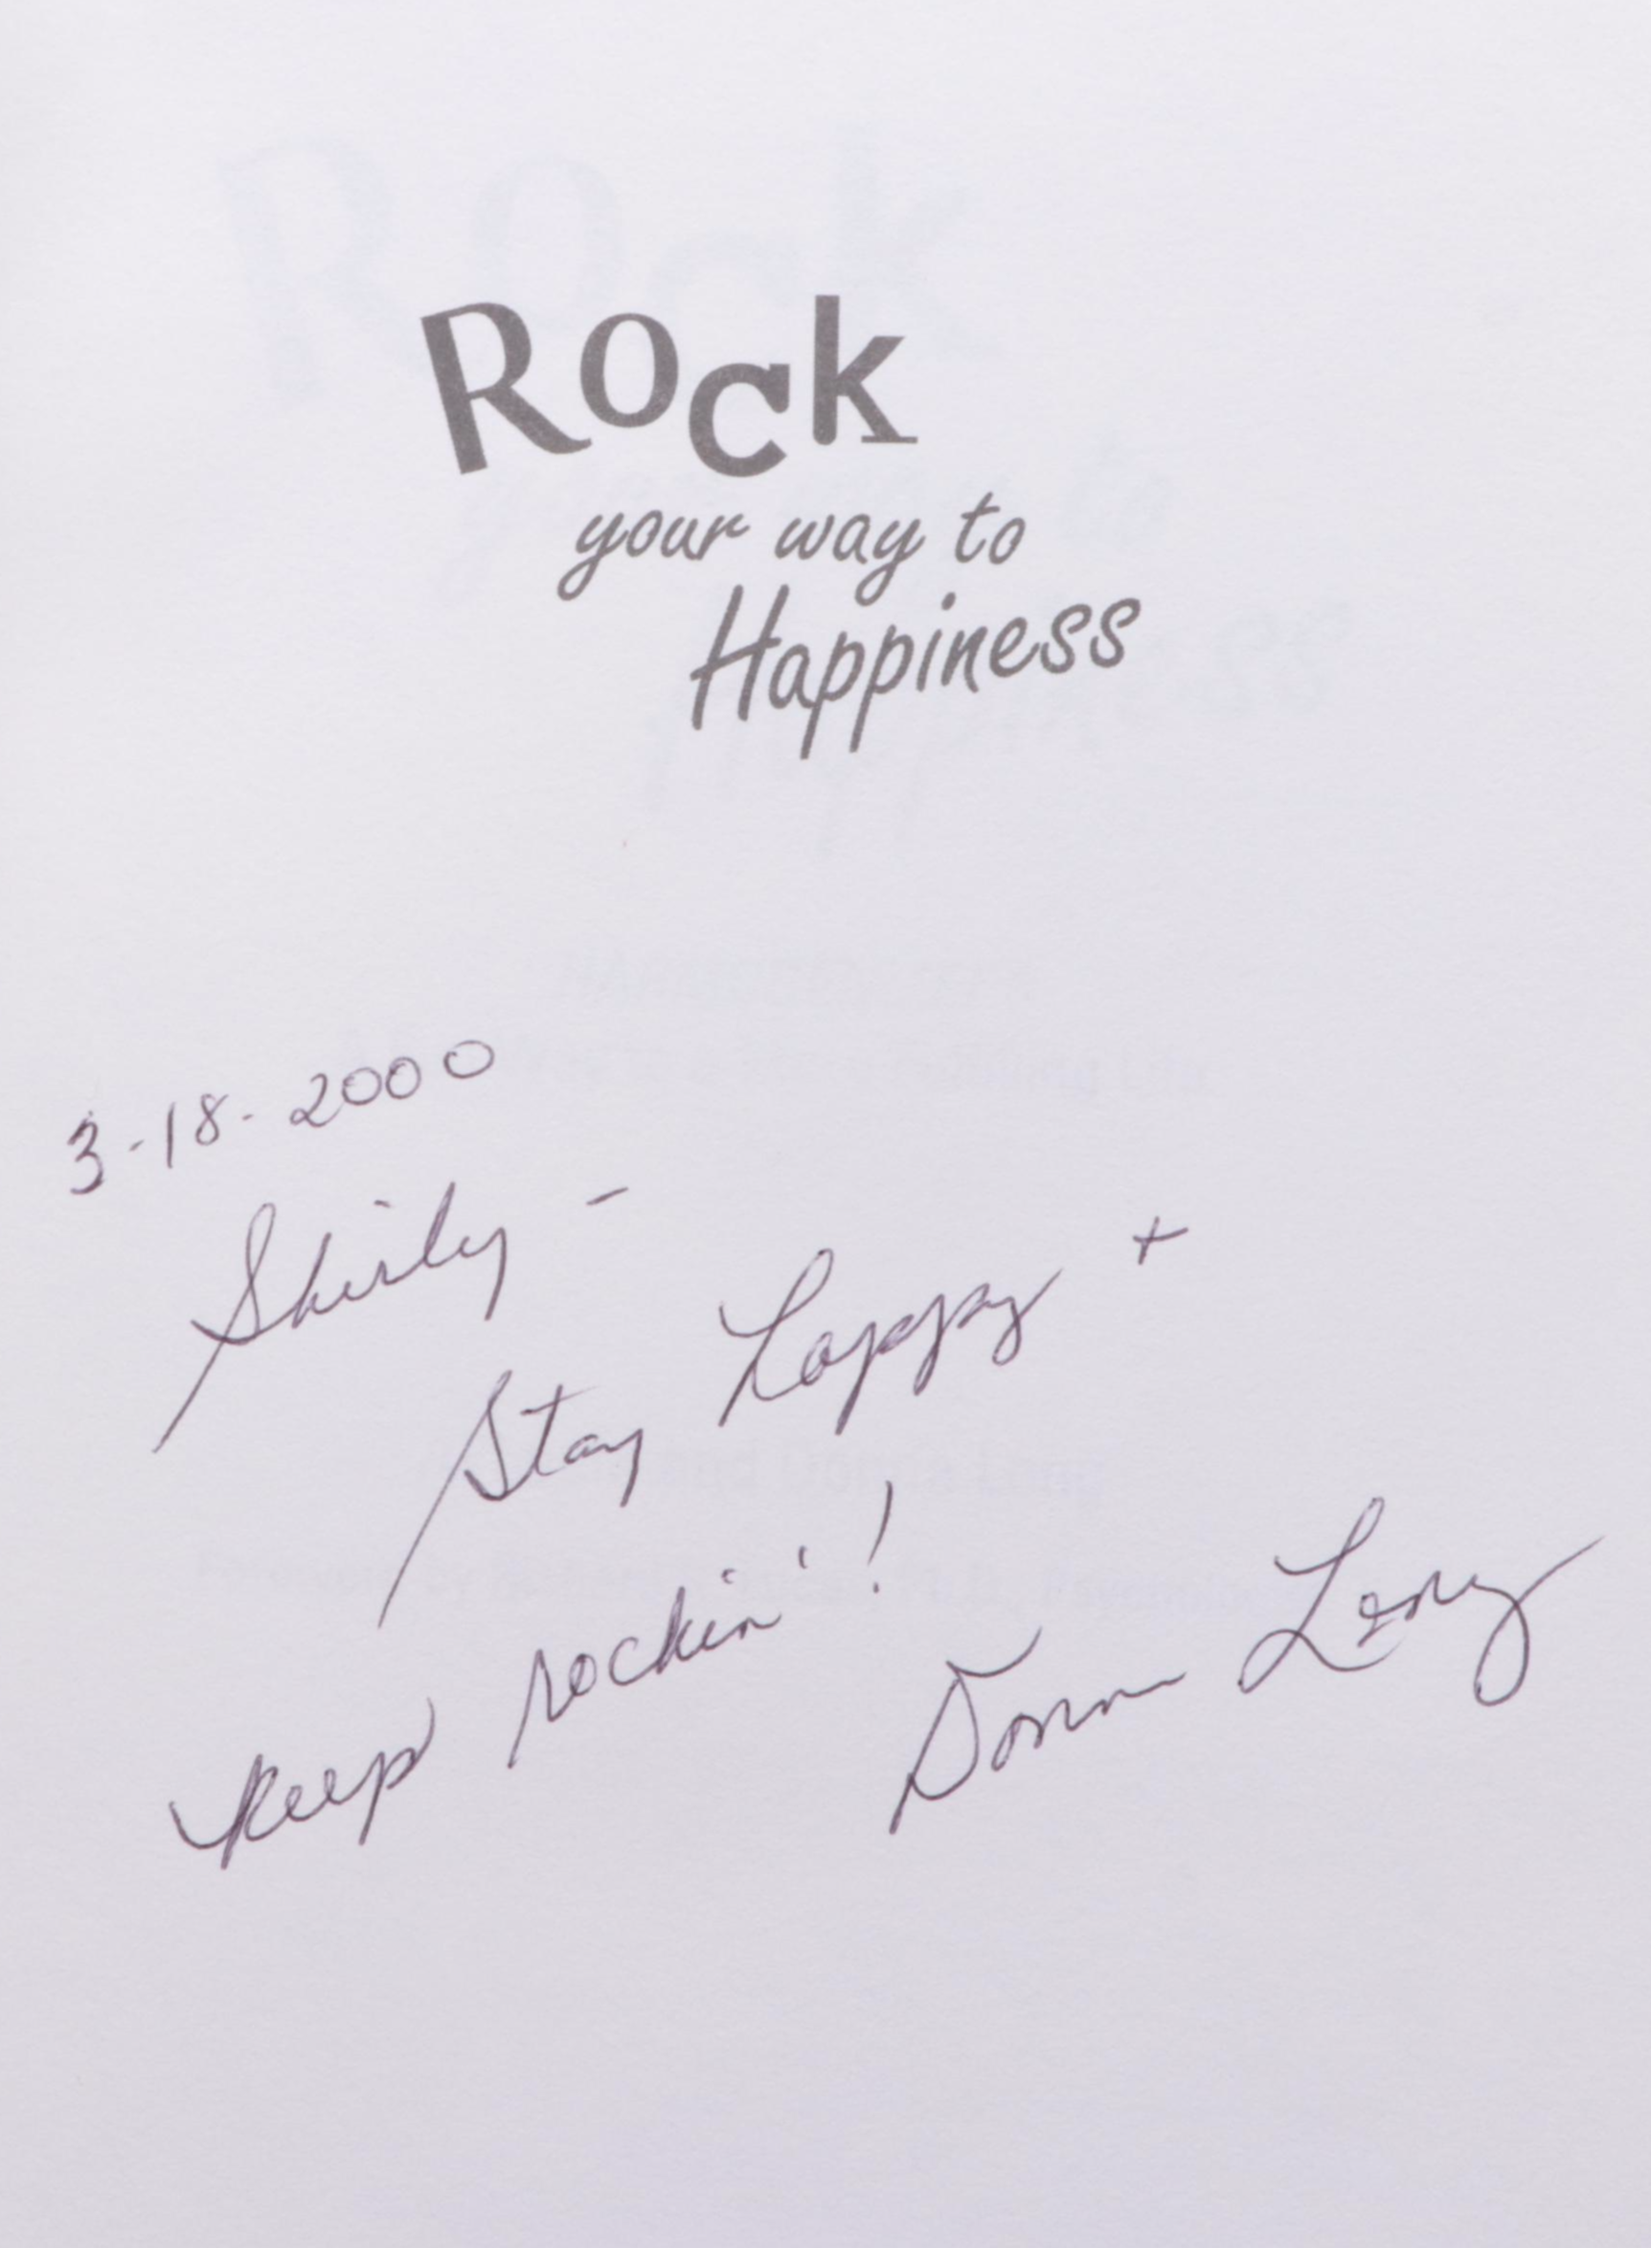 Rock
your way to
Happiness
3-18-2000
Shirley -
Stay Happy +
keep rockin'!
Donna Long
and Donna Long